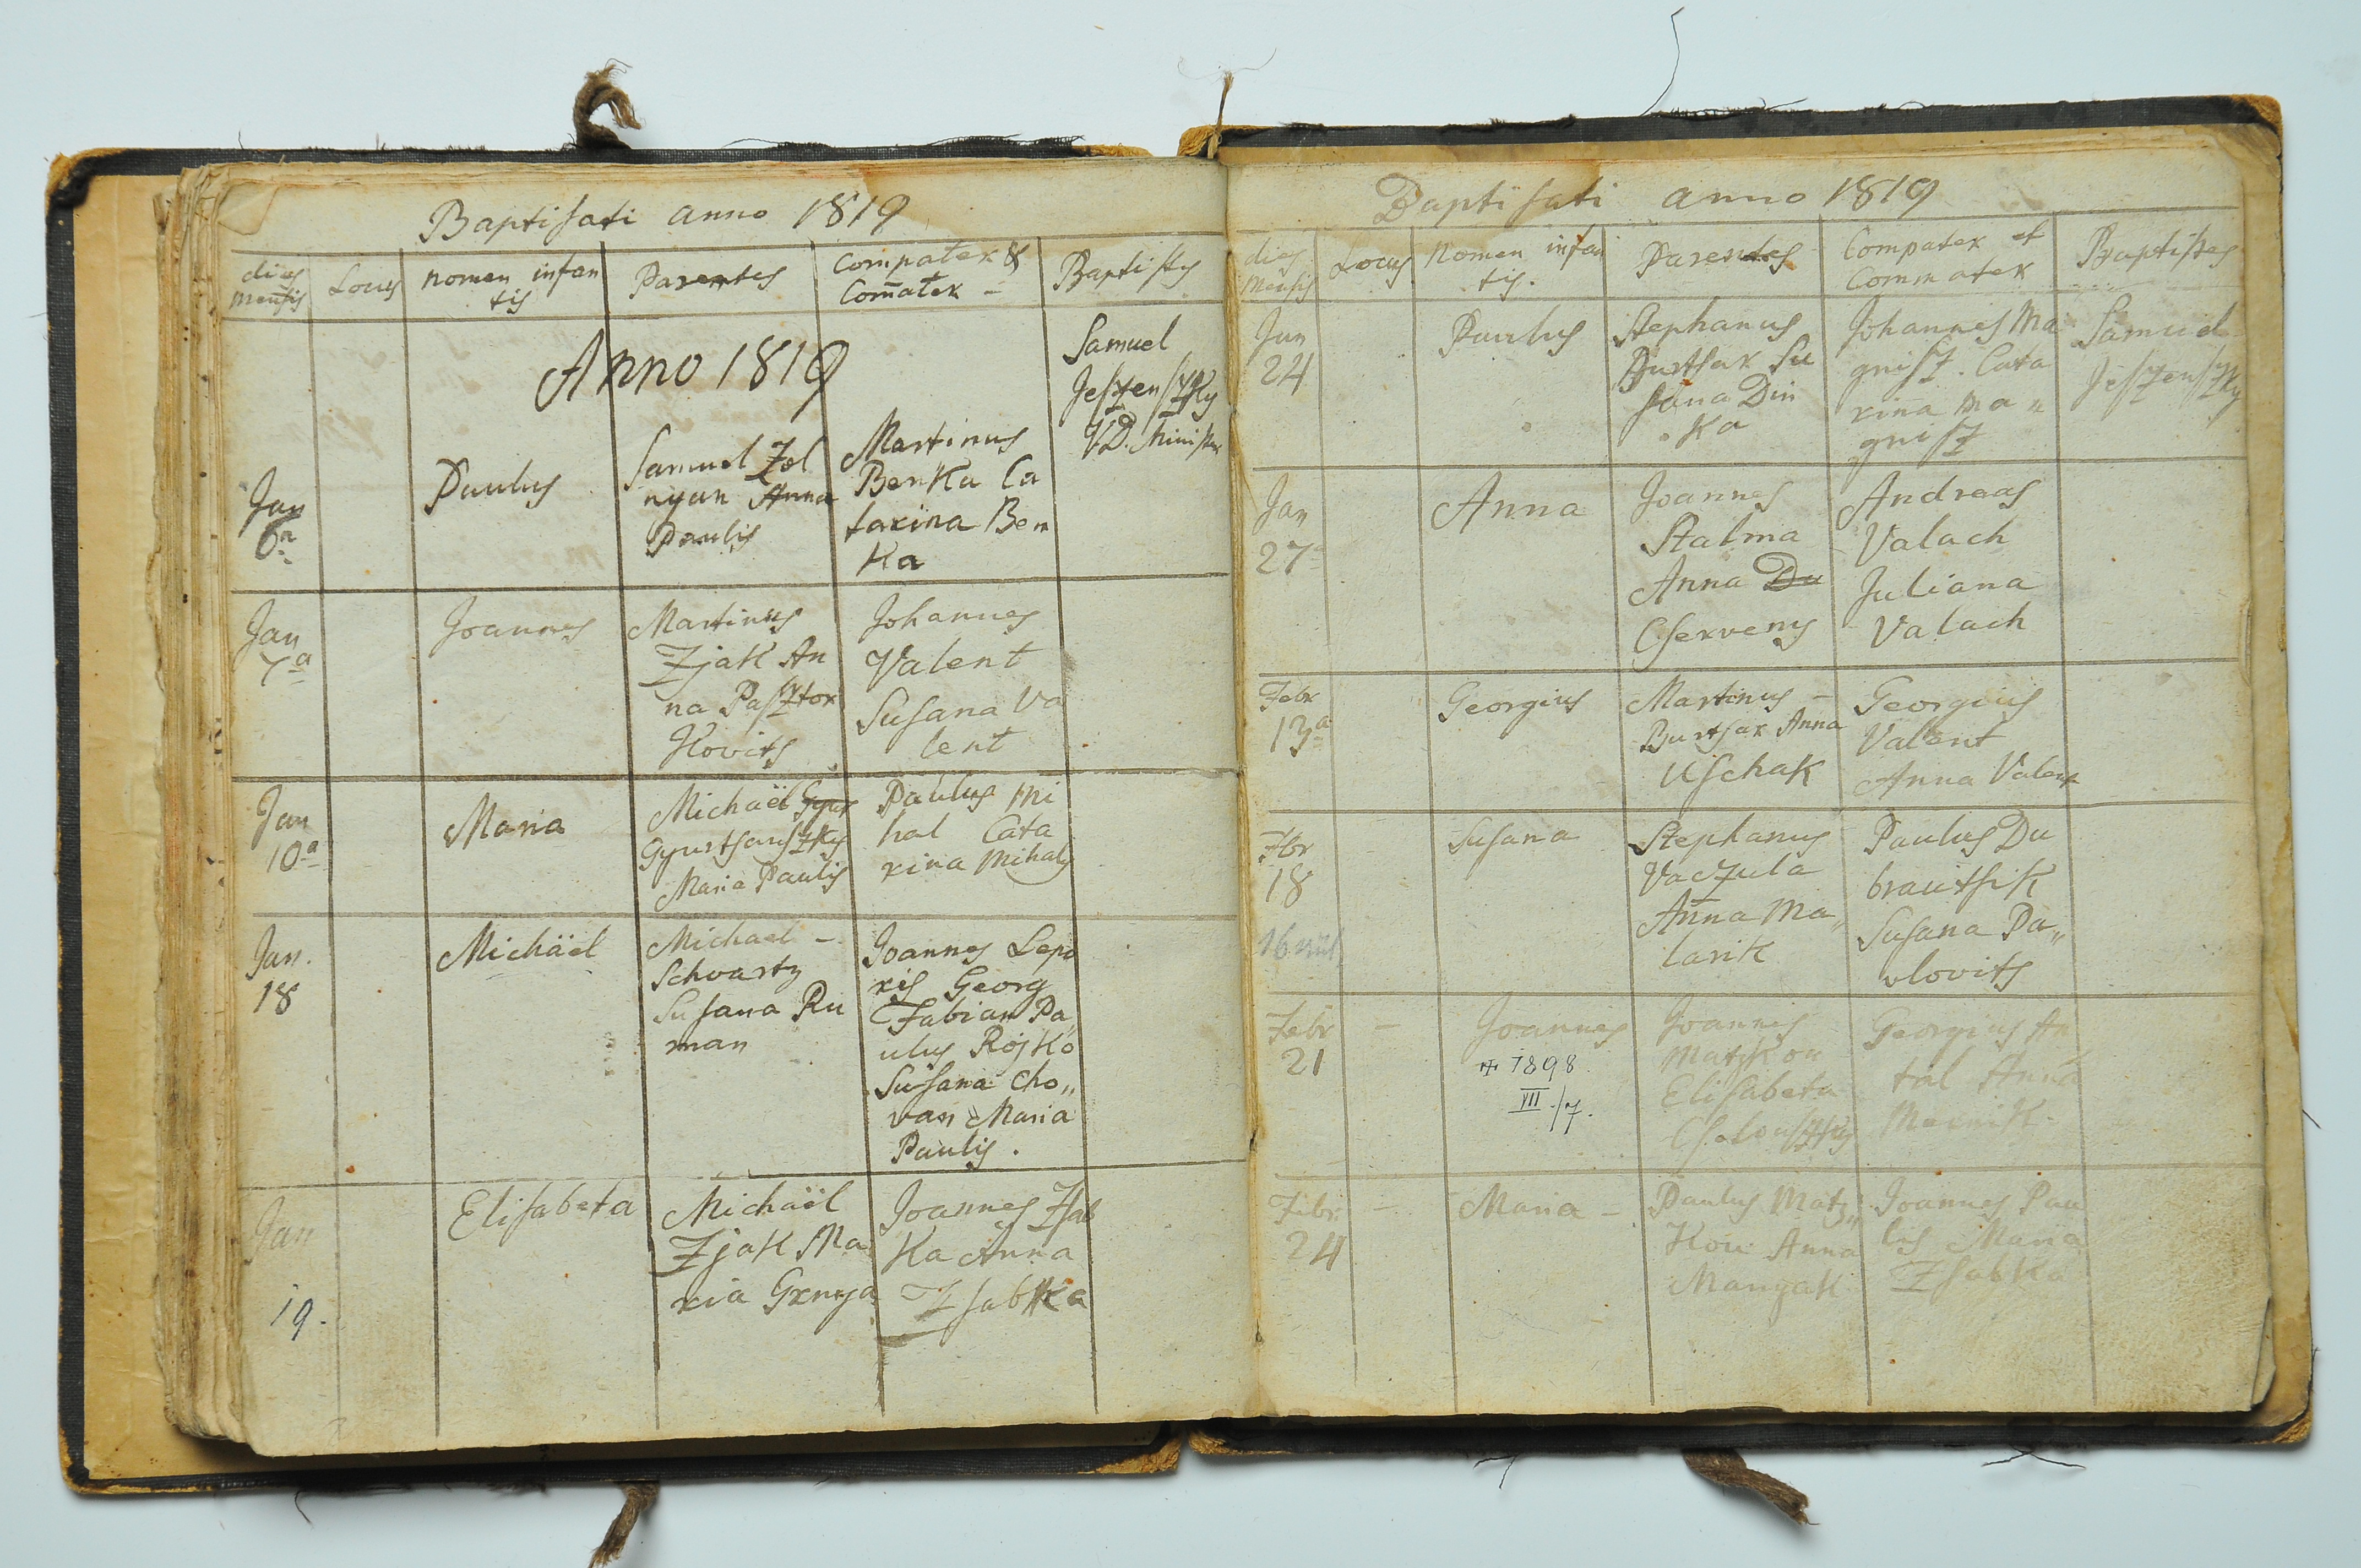 Baptisati anno 1819
dies mensis
Locus
nomen infan
tis
Parentes
Compater &
Com̄ater
Baptistes
Anno 1819
Samuel
Jeszenszky
V.D. Minister
Jan
6a
Paulus
Samuel Zol
nyan Anna
Paulis
Martinus
Benka Ca
tarina Ben
ka
Jan
7a
Joannes
Martinus
Zjak An
na Pasztor
Kovits
Johannes
Valent
Susana Va
lent
Jan
10a
Maria
Michaël Gyur
Gyurtsanszky
Maria Paulis
Paulus Mi
hal Cata
rina Mihaly
Jan.
18
Michäel
Michael –
Schvartz
Susana Ru
man
Joannes Lepo
ris Georg
Fabian Pa
ulus Rojko
Susana Cho„
van Maria
Paulis.
Jan
19.
Elisabeta
Michaël
Zjak Ma
ria Grnya
Joannes Zsab
ka Anna
Zsabka
Baptisati anno 1819
dies
mensis
Locus
Nomen infan
tis.
Parentes
Compater et
Commater
Baptistes
Jan
24
Paulus
Stephanus
Burtsar Su
sana Din
ka
Johannes Ma
gnisz. Cata
rin̄a Ma„
gnisz
Samuel
Jeszenszky
Jan
27a
Anna
Joannes
Stalma
Anna Du
Cserveny
Andreas
Valach
Juliana
Valach
Febr
13a
Georgius
Martinus –
Burtsar Anna
Uschak
Georgius
Valent
Anna Valent
Fbr
18
Susana
Stephanus
Vaczula
An̄na Ma„
larik
Paulus Du
brautsik
Susana Pa„
vlovits
Febr
21
–
Joannes
1898.
VII./7.
Joannes
Matzkou
Elisabeta
Georgius An
tal Anna
Febr.
24
–
Maria –
Paulus Matz„
kou Anna
Mangak
Joannes Pau
lis Maria
Zsabka